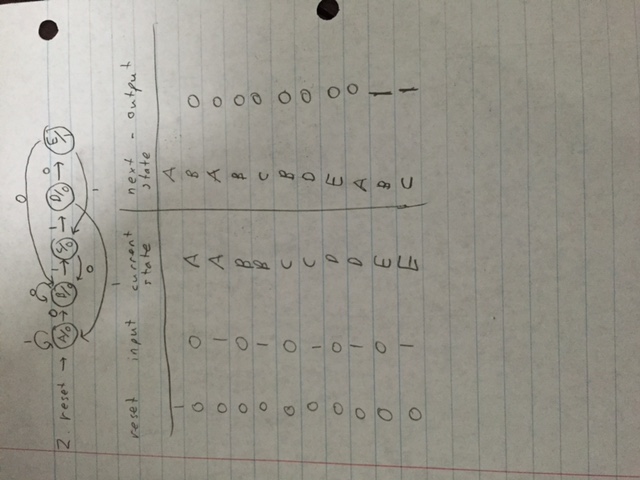 0
1 0 0 1 0 1 1 0
2. reset → A/0
1
reset input current state next state - output
1 A
0 0 A B 0
0 1 A A 0
0 0 B B 0
0 1 B C 0
0 0 C B 0
0 1 C D 0
0 0 D E 0
0 1 D A 0
0 0 E B 1
0 1 E C 1